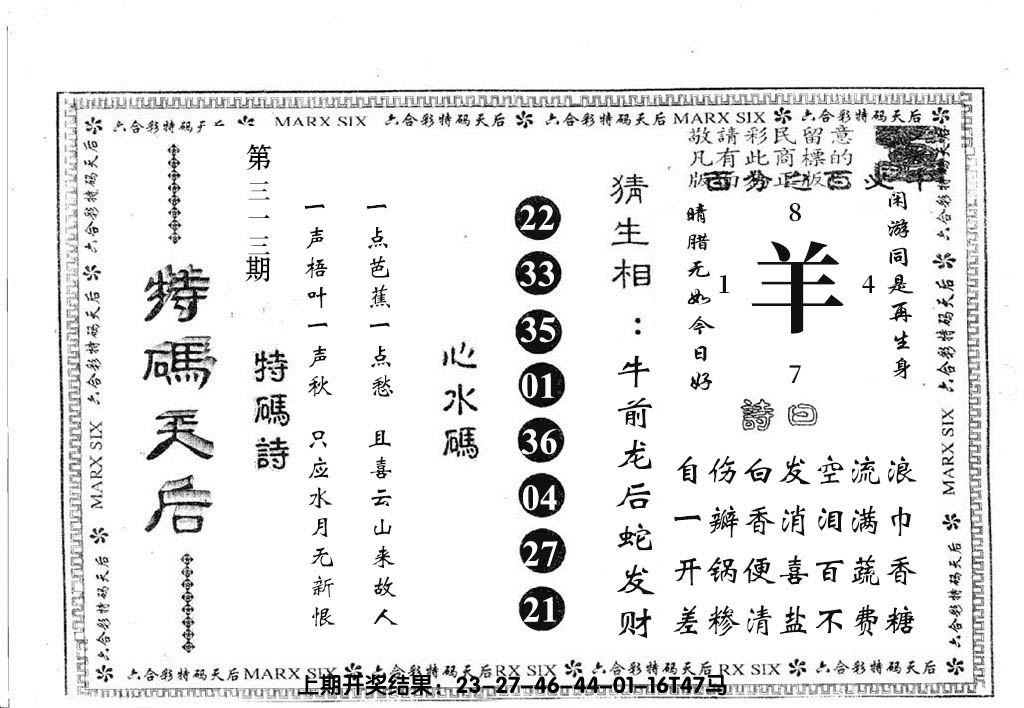 六合彩特码天后 MARX SIX 六合彩特码天后 六合彩特码天后 MARX SIX 六合彩特码天后
敬請彩民留意
凡有此商標的
版面为正版
猜生相：牛前龙后蛇发财
闲游同是再生身
8
1 羊 4
7
晴腊无如今日好
詩曰
自伤白发空流浪
一瓣香消泪满巾
开锅便喜百蔬香
差糁清盐不费糖
22
33
35
01
36
04
27
21
心水碼
一点芭蕉一点愁 且喜云山来故人
一声梧叶一声秋 只应水月无新恨
特碼詩
第三一三期
特碼天后
六合彩特码天后 六合彩特码天后 MARX SIX 六合彩特码天后
六合彩特码天后 六合彩特码天后 MARX SIX 六合彩特码天后
六合彩特码天后 MARX SIX 六合彩特码天后 RX SIX 六合彩特码天后 RX SIX 六合彩特码天后
上期开奖结果：23-27-46-44-01-16T47马